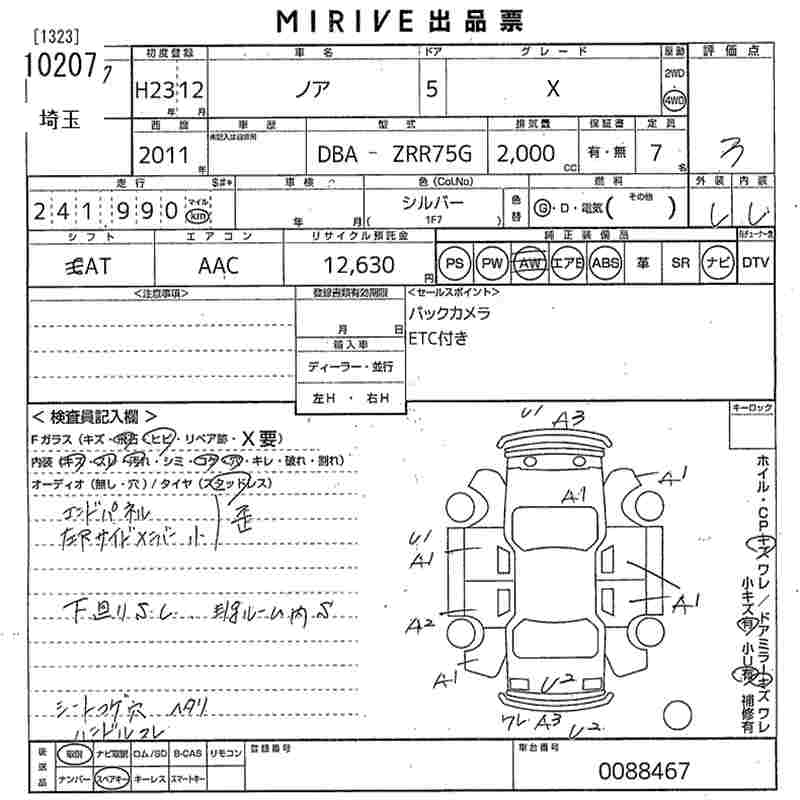 MIRIVE 出品票
[1323]
10207
埼玉
初度登録 車名 ドア グレード 駆動 評価点
H23 12 年 月 ノア 5 X 2WD 4WD
西暦 車歴 型式 排気量 保証書 定員
未記入は自家用
2011年 DBA - ZRR75G 2,000 CC 有・無 7名 3
走行 $#* 車検 色(Col.No) 燃料 外装 内装
241,990 マイル km 年 月 シルバー ( 1F7 ) 色替 G・D・電気( その他 )
シフト エアコン リサイクル預託金 純正装備品
AT AAC 12,630円 PS PW AW エアB ABS 革 SR ナビ DTV
<注意事項> 登録書類有効期限 <セールスポイント>
月 日 バックカメラ
輸入車 ETC付き
ディーラー・並行
左H ・ 右H
キーロック
< 検査員記入欄 >
Fガラス(キズ・飛石・ヒビ・リペア跡・X要)
内装(キズ・スレ・汚れ・シミ・コゲ・穴・キレ・破れ・割れ)
オーディオ(無し・穴)/タイヤ(スタッドレス)
エンドパネル
左Rサイドメンバー 小 歪
下廻りS.C. ルーム内S
シートコゲ穴 ヘタリ
ハンドルスレ
U1 A3
A1 A1
U1
A1
A1
A2
A1
U2
ワレ A3 U2
ホイル・CPキズ ワレ/ドアミラーキズ ワレ
小キズ有 小U有 補修有
後送品 取説 ナビ取説 ロム/SD B-CAS リモコン 登録番号 車台番号
ナンバー スペアキー キーレス スマートキー 0088467